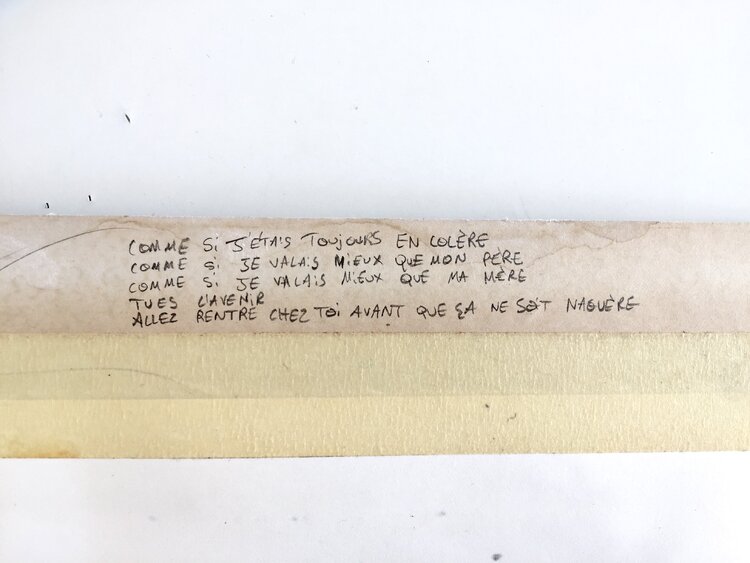 COMME Si J'ÉTAiS TOUJOURS EN COLÈRE
COMME Si JE VALAiS MiEUX QUE MON PÈRE
COMME Si JE VALAiS MiEUX QUE MA MÈRE
TU ES L'AVENiR
ALLEZ RENTRE CHEZ TOi AVANT QUE ÇA NE SOiT NAGUÈRE